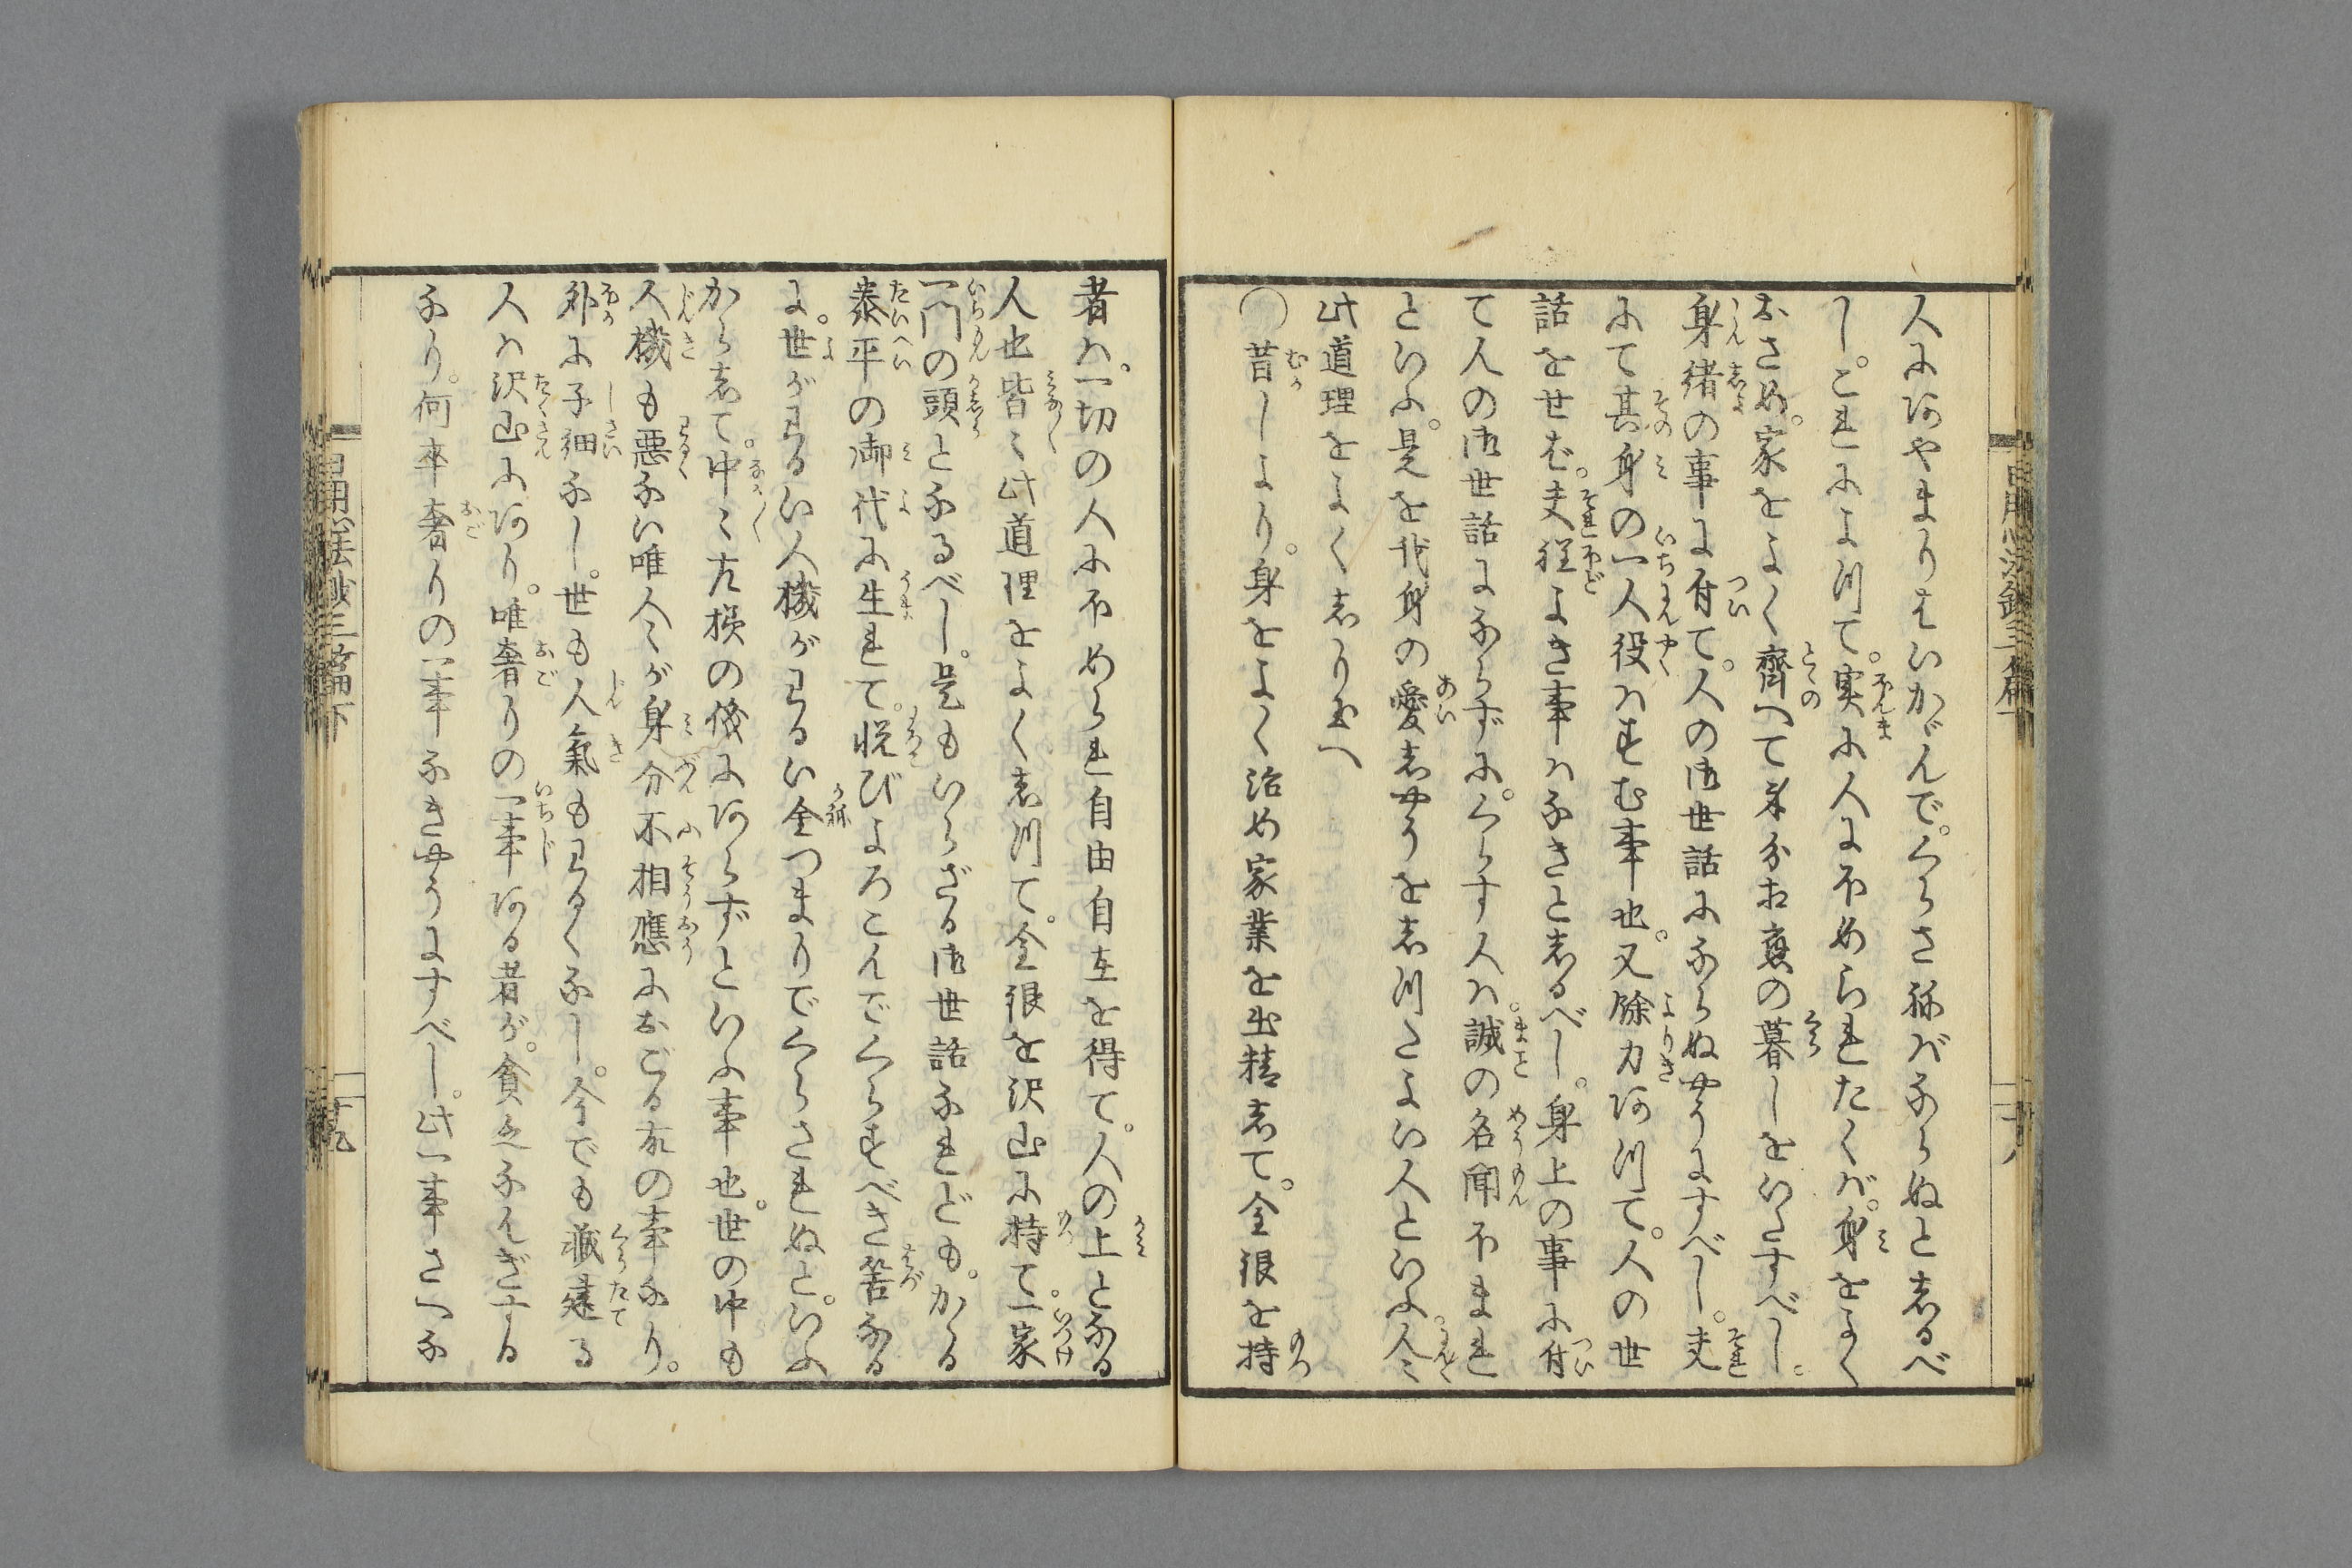 人にあやまりをいかゞんで。くらさねバならぬと志るべ
し。これによつて。実に人にほめられたくバ。身をよく
おさめ。家をよく齊へて身分相應の暮しをいたすべし。
身緒の事に付て。人の御世話にならぬやうにすべし。夫
にて其身の一人役ハすむ事也。又餘力あつて。人の世
話をせば。夫程よき事ハなきと志るべし。身上の事に付
て人の御世話にならずに。くらす人ハ。誠の名聞ほまれ
といふ。是を我身の愛志やうを志つたよい人といふ。人〻
此道理をよく志り玉へ
〇昔しより。身をよく治め家業を出精志て。金銀を持
者ハ。一切の人にほめられ自由自在を得て。人の上となる
人也皆〻此道理をよく志つて。金銀を沢山に持て。一家
一門の頭となるべし。是もいらざる御世話なれども。かゝる
泰平の御代に生れて。悦びよろこんでくらすべき筈なる
に。世がわるい人機がわるい金つまりでくらされぬと。いふ
から志て。中〻左様の儀にあらずといふ事也。世の中も
人機も悪ない唯人〻が身分不相應におごる故の事なり。
外に子細なし。世も人氣もわるくなし。今でも藏建る
人ハ沢山にあり。唯奢りの一事ある者が。貧乏なんぎする
なり。何卒奢りの一事なきやうにすべし。此一事さへな
日用心法鈔三篇下
十九